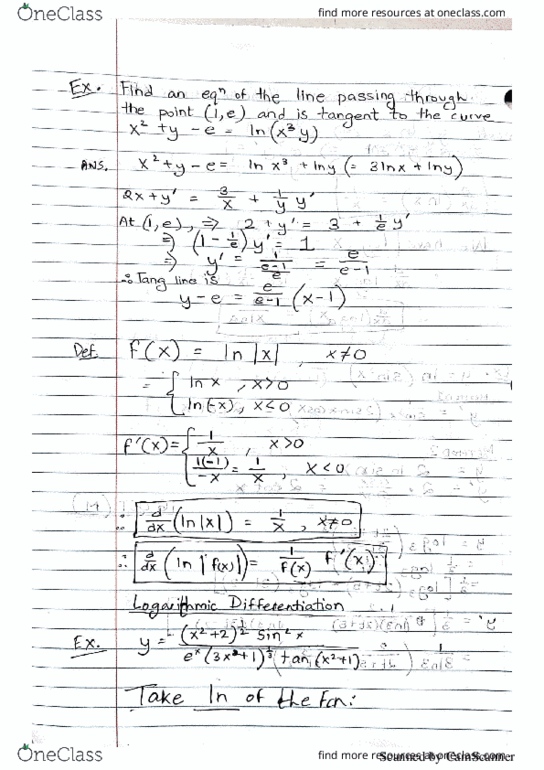 OneClass
find more resources at oneclass.com
Ex. Find an eqⁿ of the line passing through
the point (1,e) and is tangent to the curve
x² + y - e = ln(x³y)
ANS. x² + y - e = ln x³ + ln y (= 3 ln x + ln y)
2x + y' = 3/x + 1/y y'
At (1,e), ⇒ 2 + y' = 3 + 1/e y'
⇒ (1 - 1/e) y' = 1
⇒ y' = 1/((e-1)/e) = e/(e-1)
∴ Tang line is
y - e = e/(e-1) (x-1)
Def. f(x) = ln|x| , x≠0
= { ln x , x>0
ln(-x), x<0
f'(x) = { 1/x , x>0
1(-1)/-x = 1/x , x<0
∴ d/dx (ln|x|) = 1/x , x≠0
∴ d/dx (ln|f(x)|) = 1/f(x) f'(x)
Logarithmic Differentiation
Ex. y = (x²+2)^½ sin² x / eˣ (3x³+1)^⅓ (tan(x²+1)
Take ln of the fcn:
OneClass
find more resources at oneclass.com
Scanned by CamScanner